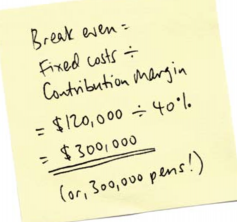 Break even =
Fixed costs ÷
Contribution Margin
= $120,000 ÷ 40%
= $300,000
(or, 300,000 pens!)